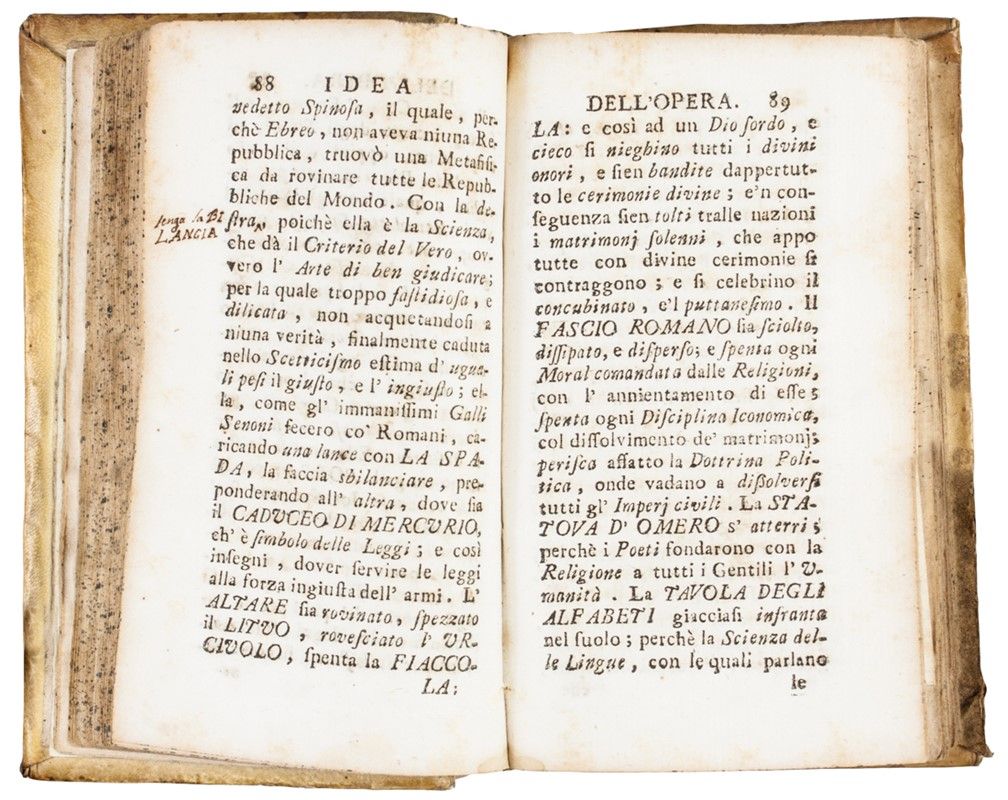 88 IDEA
nedetto Spinoſa, il quale, per-
chè Ebreo, non aveva niuna Re-
pubblica, truovò una Metafiſi-
ca da rovinare tutte le Repub-
bliche del Mondo. Con la de-
ſtra, poichè ella è la Scienza,
ſenga la BI
LANCIA
che dà il Criterio del Vero, ov-
vero l' Arte di ben giudicare;
per la quale troppo faſtidioſa, e
dilicata, non acquetandoſi a
niuna verità, finalmente caduta
nello Scetticiſmo eſtima d' ugua-
li peſi il giuſto, e l' ingiuſto; el-
la, come gl' immaniſſimi Galli
Senoni fecero co' Romani, ca-
ricando una lance con LA SPA-
DA, la faccia sbilanciare, pre-
ponderando all' altra, dove ſia
il CADVCEO DI MERCVRIO,
ch' è ſimbolo delle Leggi; e così
inſegni, dover ſervire le leggi
alla forza ingiuſta dell' armi. L'
ALTARE ſia rovinato, ſpezzato
il LITVO, roveſciato l' VR-
CIVOLO, ſpenta la FIACCO-
LA:
DELL'OPERA. 89
LA: e così ad un Dio ſordo, e
cieco ſi nieghino tutti i divini
onori, e ſien bandite dappertut-
to le cerimonie divine; e'n con-
ſeguenza ſien tolti tralle nazioni
i matrimonj ſolenni, che appo
tutte con divine cerimonie ſi
contraggono; e ſi celebrino il
concubinato, e'l puttaneſimo. Il
FASCIO ROMANO ſia ſciolto,
diſſipato, e diſperſo; e ſpenta ogni
Moral comandata dalle Religioni,
con l' annientamento di eſſe;
ſpenta ogni Diſciplina Iconomica,
col diſſolvimento de' matrimonj;
periſca affatto la Dottrina Poli-
tica, onde vadano a diſſolverſi
tutti gl' Imperj civili. La STA-
TOVA D' OMERO s' atterri;
perchè i Poeti fondarono con la
Religione a tutti i Gentili l' V-
manità. La TAVOLA DEGLI
ALFABETI giacciaſi infranta
nel ſuolo; perchè la Scienza del-
le Lingue, con le quali parlano
le